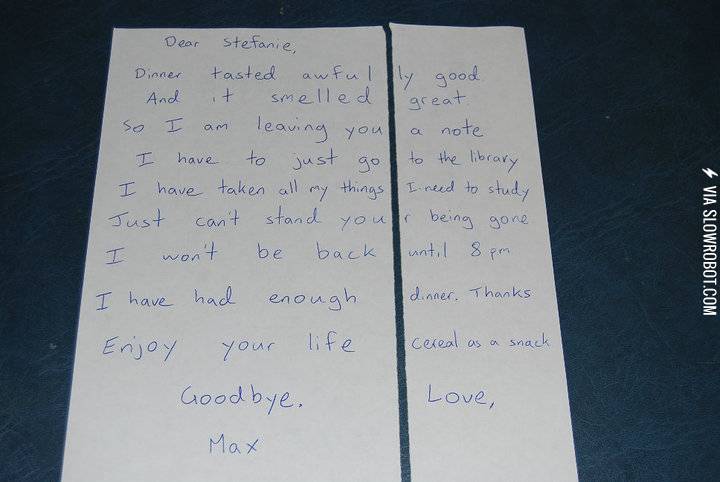 Dear Stefanie,
Dinner tasted awful ly good
And it smelled great
So I am leaving you a note
I have to just go to the library
I have taken all my things I need to study
Just can't stand you r being gone
I won't be back until 8 pm
I have had enough dinner. Thanks
Enjoy your life cereal as a snack
Goodbye. Love,
Max
VIA SLOWROBOT.COM